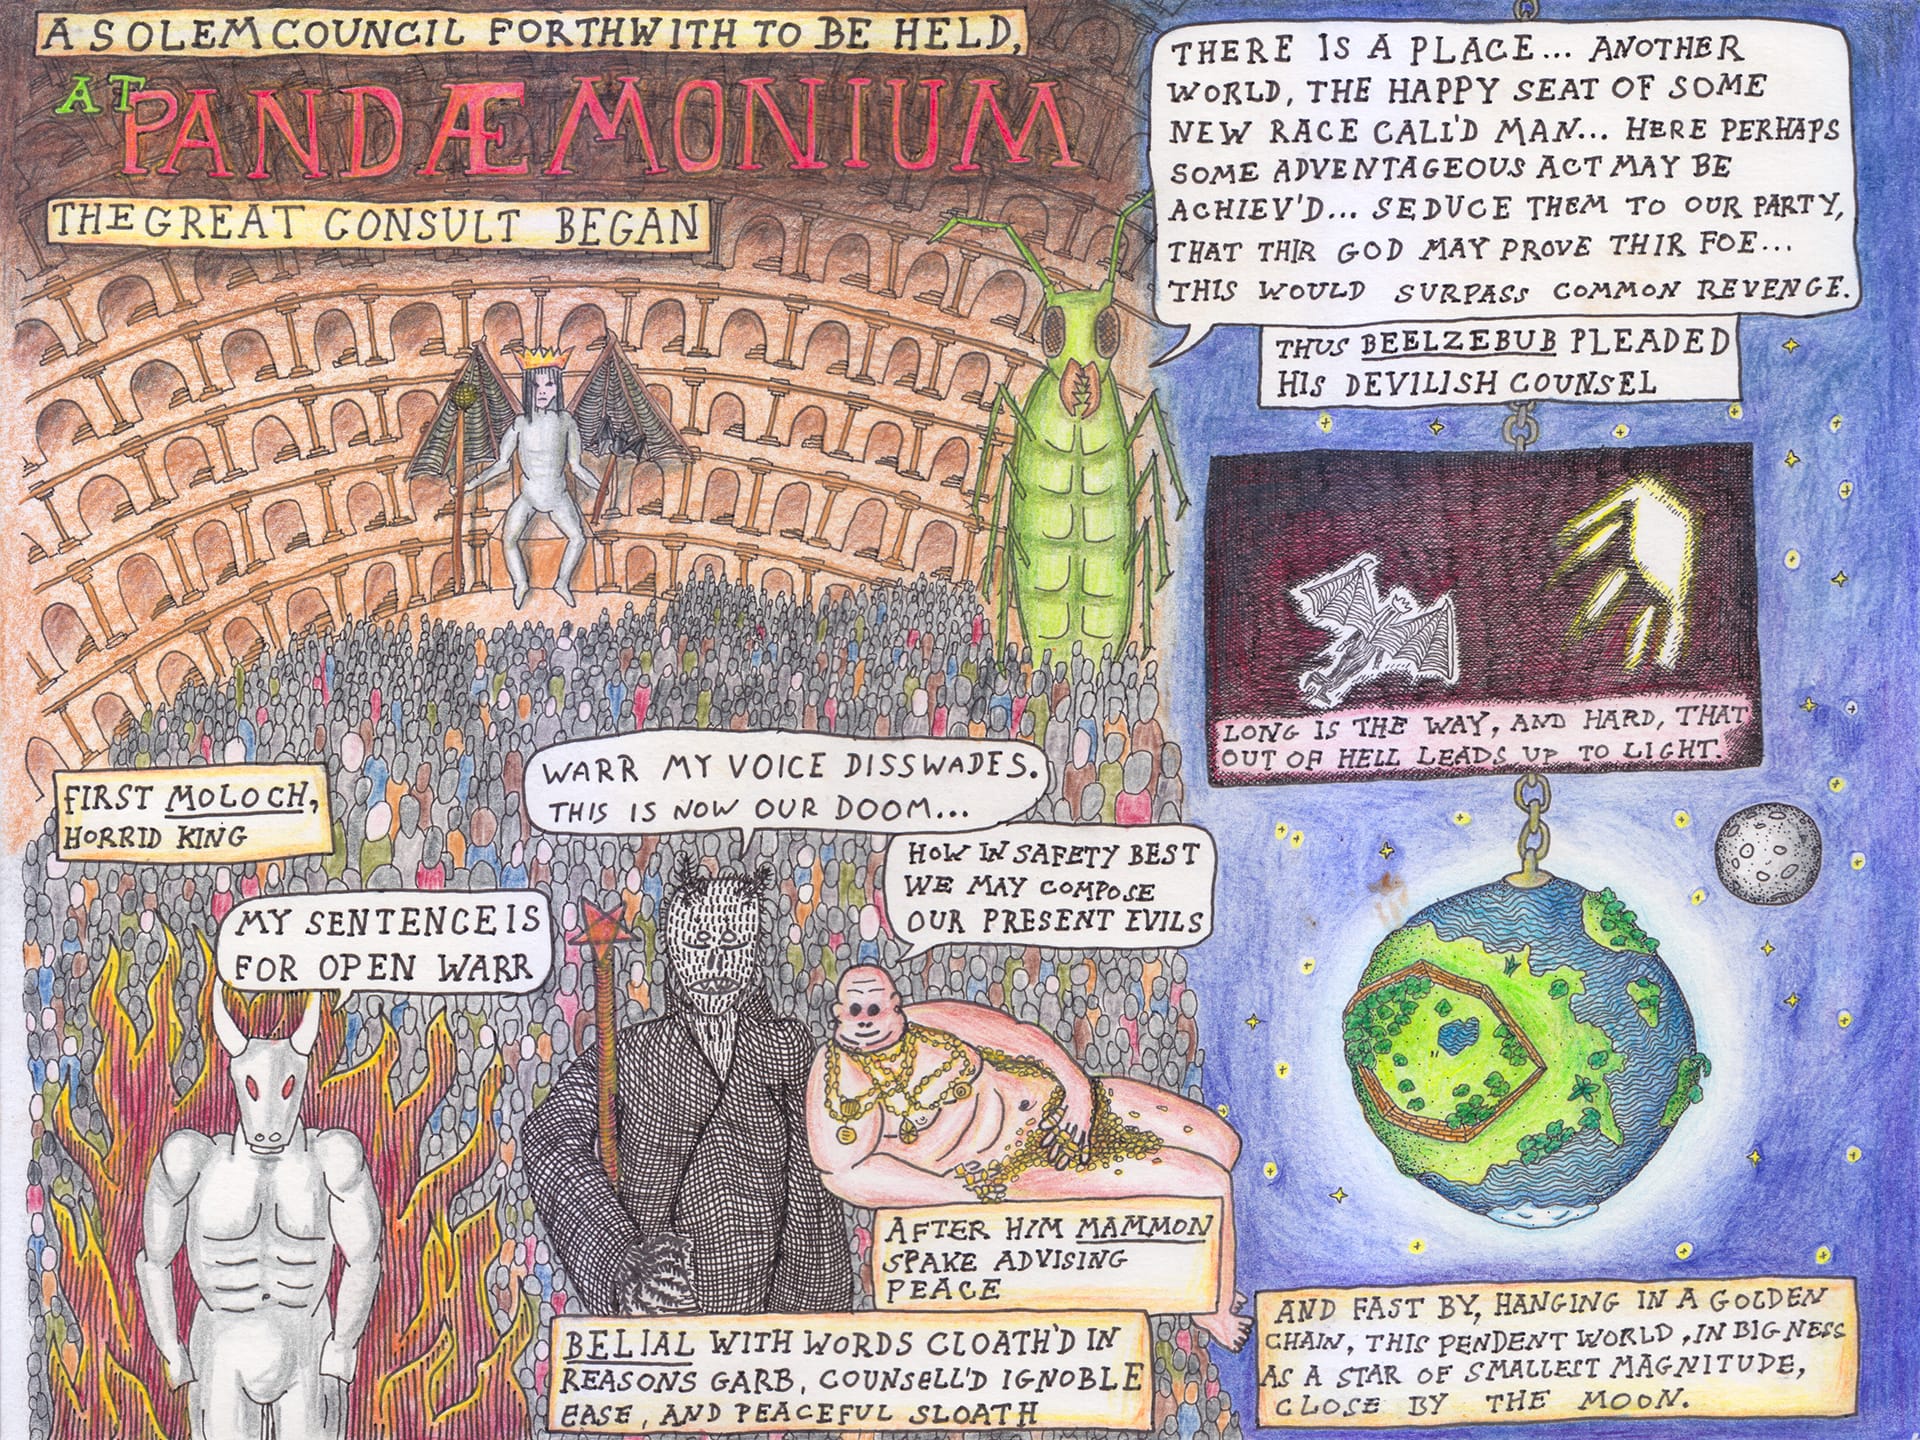 A SOLEM COUNCIL FORTHWITH TO BE HELD,
AT PANDÆMONIUM
THE GREAT CONSULT BEGAN
FIRST MOLOCH,
HORRID KING
MY SENTENCE IS
FOR OPEN WARR
WARR MY VOICE DISSWADES.
THIS IS NOW OUR DOOM...
BELIAL WITH WORDS CLOATH'D IN
REASONS GARB, COUNSELL'D IGNOBLE
EASE, AND PEACEFUL SLOATH
HOW IN SAFETY BEST
WE MAY COMPOSE
OUR PRESENT EVILS
AFTER HIM MAMMON
SPAKE ADVISING
PEACE
THERE IS A PLACE... ANOTHER
WORLD, THE HAPPY SEAT OF SOME
NEW RACE CALL'D MAN... HERE PERHAPS
SOME ADVENTAGEOUS ACT MAY BE
ACHIEV'D... SEDUCE THEM TO OUR PARTY,
THAT THIR GOD MAY PROVE THIR FOE...
THIS WOULD SURPASS COMMON REVENGE.
THUS BEELZEBUB PLEADED
HIS DEVILISH COUNSEL
LONG IS THE WAY, AND HARD, THAT
OUT OF HELL LEADS UP TO LIGHT.
AND FAST BY, HANGING IN A GOLDEN
CHAIN, THIS PENDENT WORLD, IN BIGNESS
AS A STAR OF SMALLEST MAGNITUDE,
CLOSE BY THE MOON.